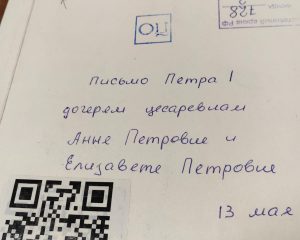 728
Письмо Петра I
дочерем цесаревнам
Анне Петровне и
Елизавете Петровне
13 мая